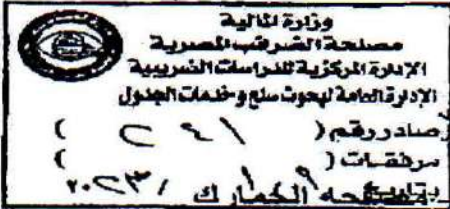 وزارة المالية
مصلحة الضرائب المصرية
الإدارة المركزية للدراسات الضريبية
الإدارة العامة لبحوث سلع وخدمات الجدول
صادر رقم ( ٢٤١ )
مرفقات ( )
بتاريخ / ٢٠٢٣
مصلحه الجمارك